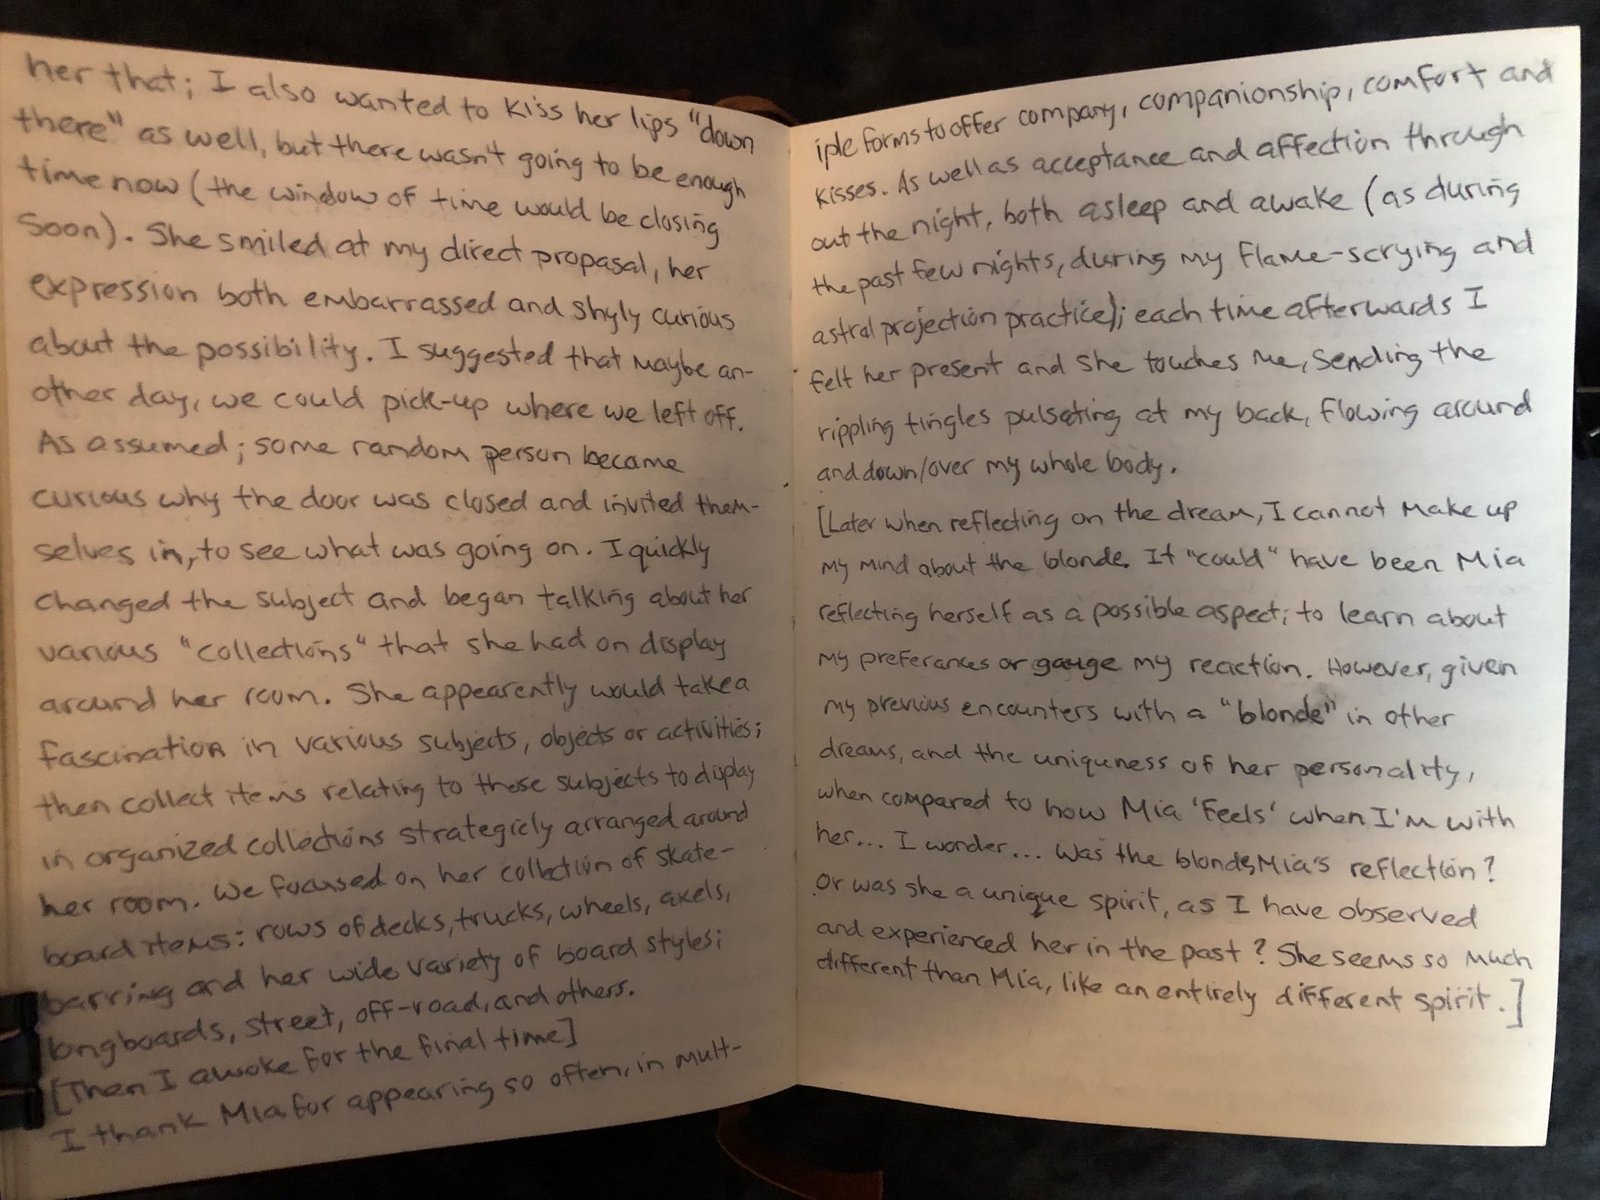 her that; I also wanted to kiss her lips "down
there" as well, but there wasn't going to be enough
time now (the window of time would be closing
soon). She smiled at my direct propasal, her
expression both embarrassed and shyly curious
about the possibility. I suggested that maybe an-
other day, we could pick-up where we left off.
As assumed; some random person became
curious why the door was closed and invited them-
selves in, to see what was going on. I quickly
changed the subject and began talking about her
various "collections" that she had on display
around her room. She appearently would take a
fascination in various subjects, objects or activities;
then collect items relating to those subjects to display
in organized collections strategicly arranged around
her room. We focused on her collection of skate-
board items: rows of decks, trucks, wheels, axels,
barring and her wide variety of board styles;
longboards, street, off-road, and others.
[Then I awoke for the final time]
I thank Mia for appearing so often, in mult-
iple forms to offer company, companionship, comfort and
kisses. As well as acceptance and affection through
out the night, both asleep and awake (as during
the past few nights, during my flame-scrying and
astral projection practice); each time afterwards I
felt her present and she touches me, sending the
rippling tingles pulsating at my back, flowing around
and down/over my whole body.
[Later when reflecting on the dream, I cannot make up
my mind about the blonde. It "could" have been Mia
reflecting herself as a possible aspect; to learn about
my preferances or gauge my reaction. However, given
my previous encounters with a "blonde" in other
dreams, and the uniquness of her personality,
when compared to how Mia 'feels' when I'm with
her... I wonder... Was the blonde, Mia's reflection?
Or was she a unique spirit, as I have observed
and experienced her in the past? She seems so much
different than Mia, like an entirely different spirit.]